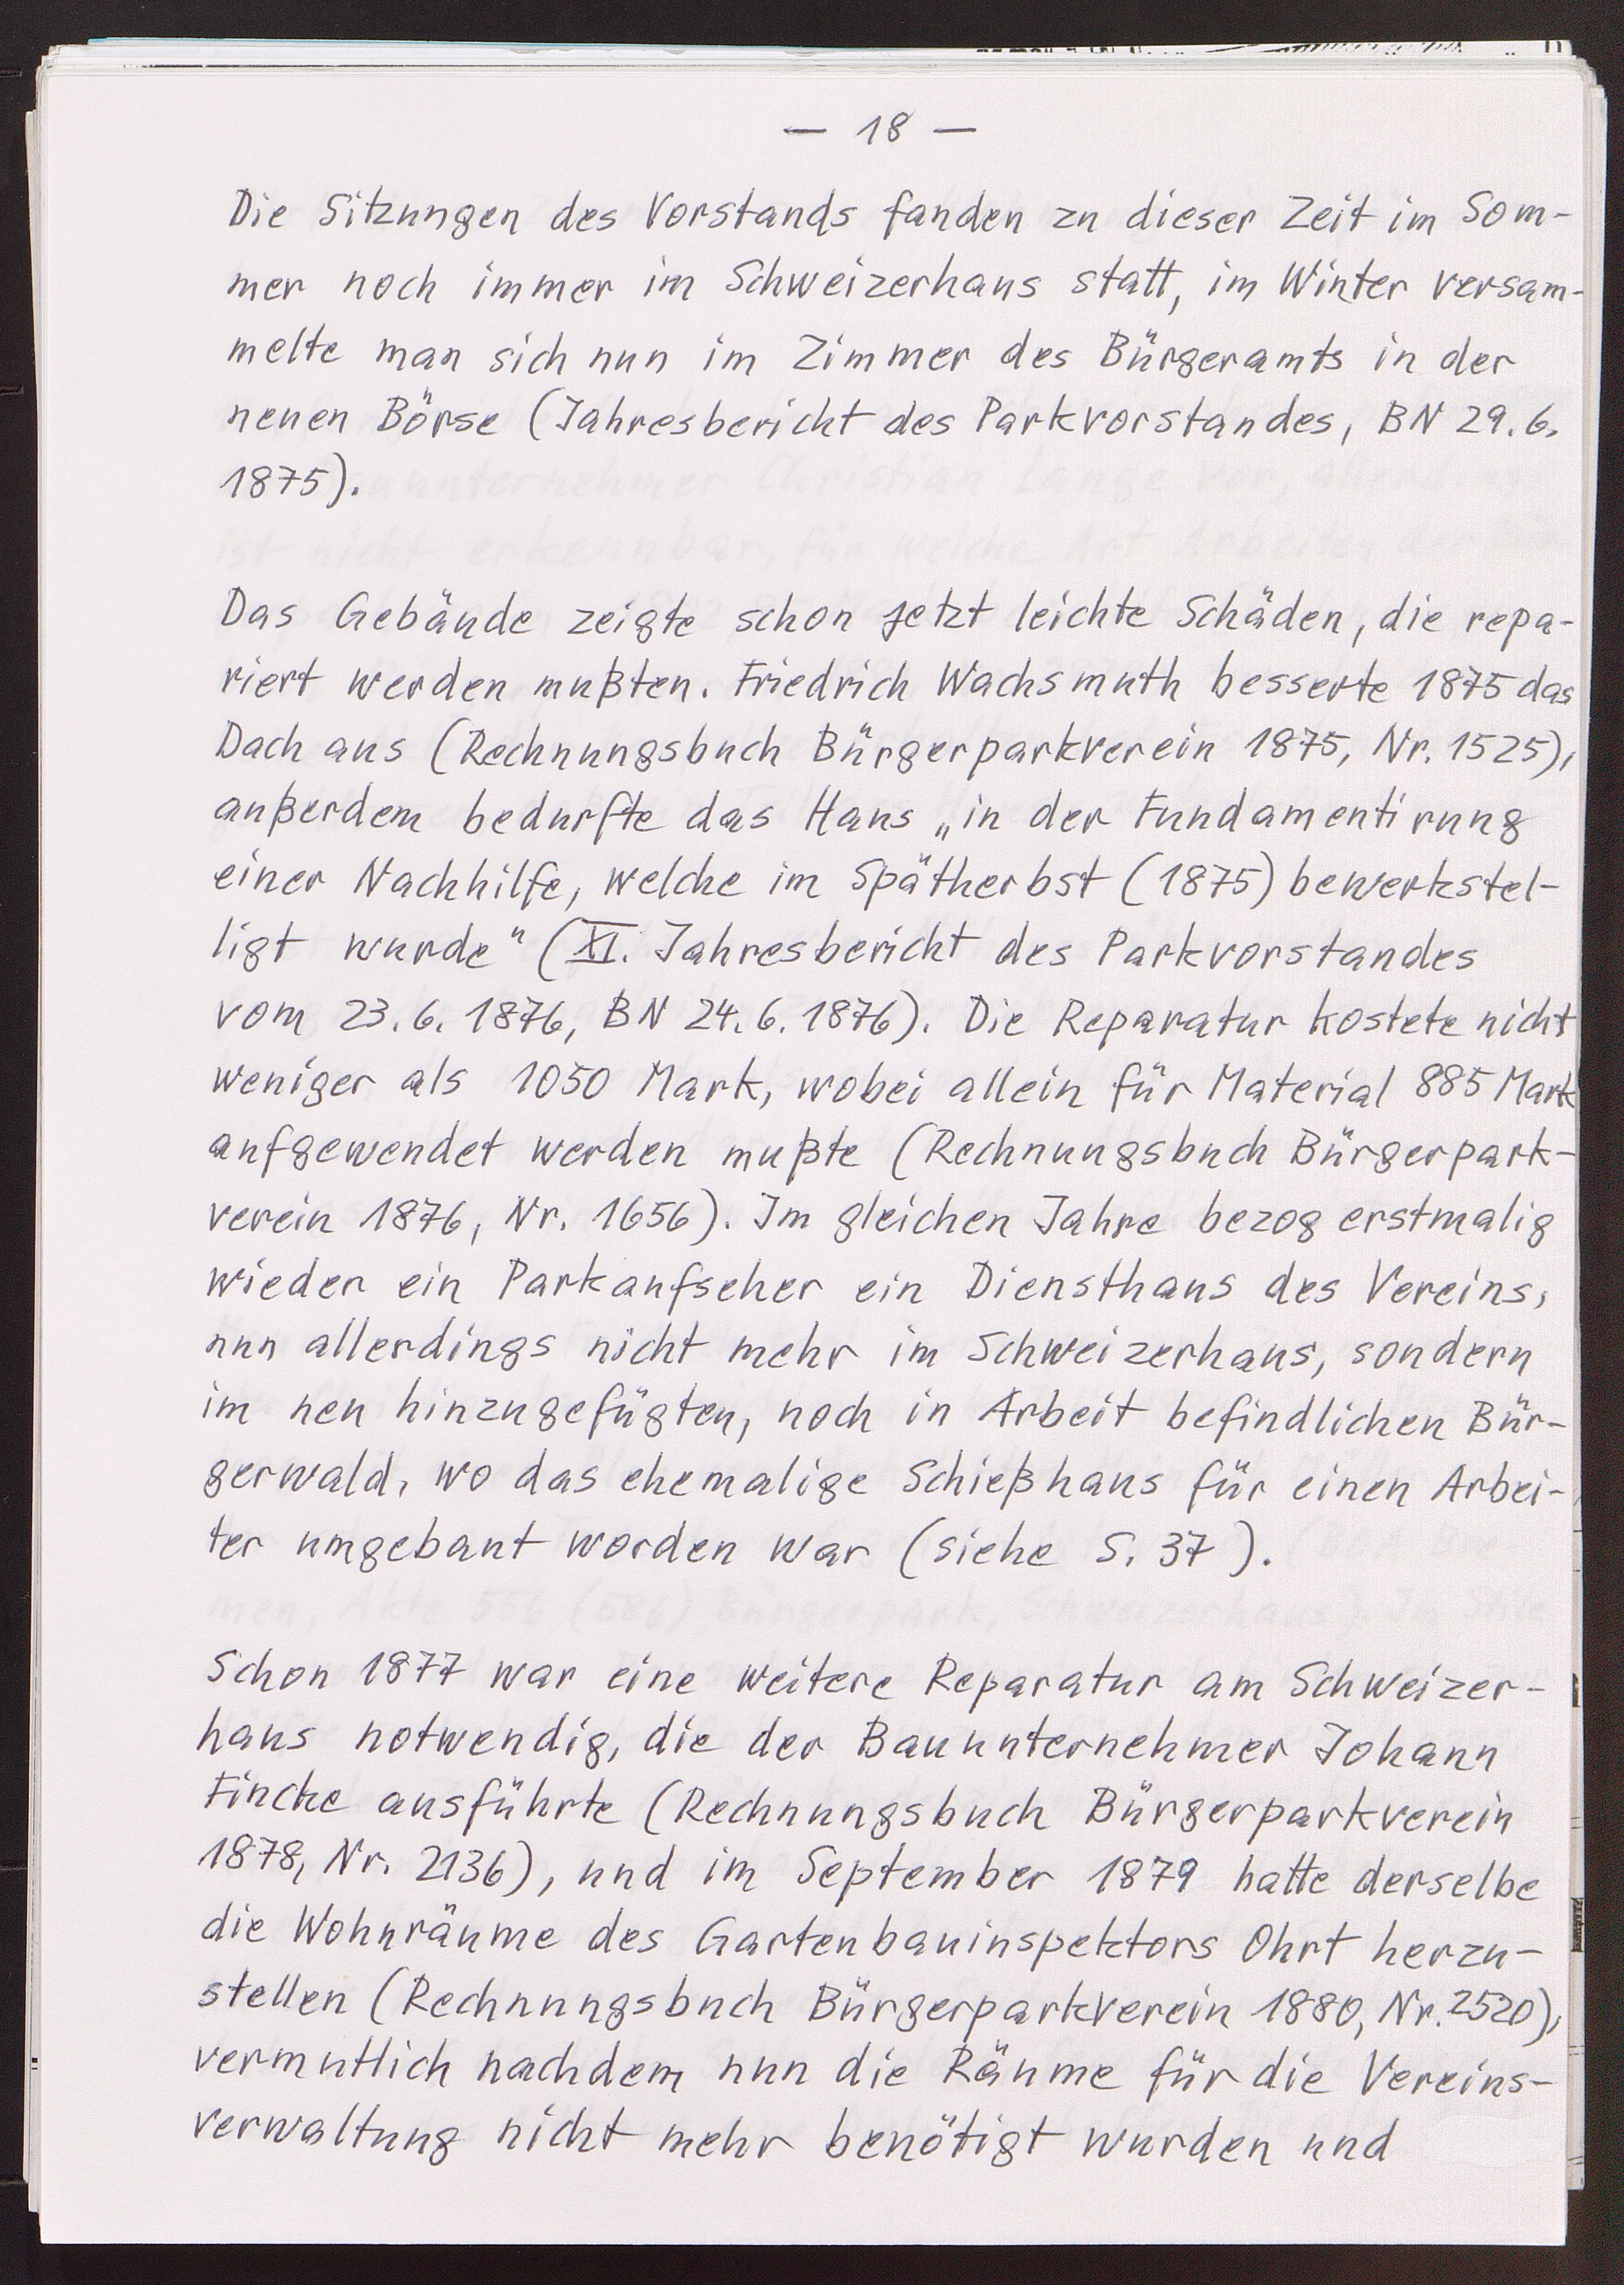 — 18 —
Die Sitzungen des Vorstands fanden zu dieser Zeit im Som-
mer noch immer im Schweizerhaus statt, im Winter versam-
melte man sich nun im Zimmer des Bürgeramts in der
neuen Börse (Jahresbericht des Parkvorstandes, BN 29.6.
1875).
Das Gebäude zeigte schon jetzt leichte Schäden, die repa-
riert werden mußten. Friedrich Wachsmuth besserte 1875 das
Dach aus (Rechnungsbuch Bürgerparkverein 1875, Nr. 1525),
außerdem bedurfte das Haus „in der Fundamentirung
einer Nachhilfe, welche im Spätherbst (1875) bewerkstel-
ligt wurde" (XI. Jahresbericht des Parkvorstandes
vom 23.6.1876, BN 24.6.1876). Die Reparatur kostete nicht
weniger als 1050 Mark, wobei allein für Material 885 Mark
aufgewendet werden mußte (Rechnungsbuch Bürgerpark-
verein 1876, Nr. 1656). Im gleichen Jahre bezog erstmalig
wieder ein Parkaufseher ein Diensthaus des Vereins,
nun allerdings nicht mehr im Schweizerhaus, sondern
im neu hinzugefügten, noch in Arbeit befindlichen Bür-
gerwald, wo das ehemalige Schießhaus für einen Arbei-
ter umgebaut worden war (siehe S. 37).
Schon 1877 war eine weitere Reparatur am Schweizer-
haus notwendig, die der Bauunternehmer Johann
Fincke ausführte (Rechnungsbuch Bürgerparkverein
1878, Nr. 2136), und im September 1879 hatte derselbe
die Wohnräume des Gartenbauinspektors Ohrt herzu-
stellen (Rechnungsbuch Bürgerparkverein 1880, Nr. 2520),
vermutlich nachdem nun die Räume für die Vereins-
verwaltung nicht mehr benötigt wurden und